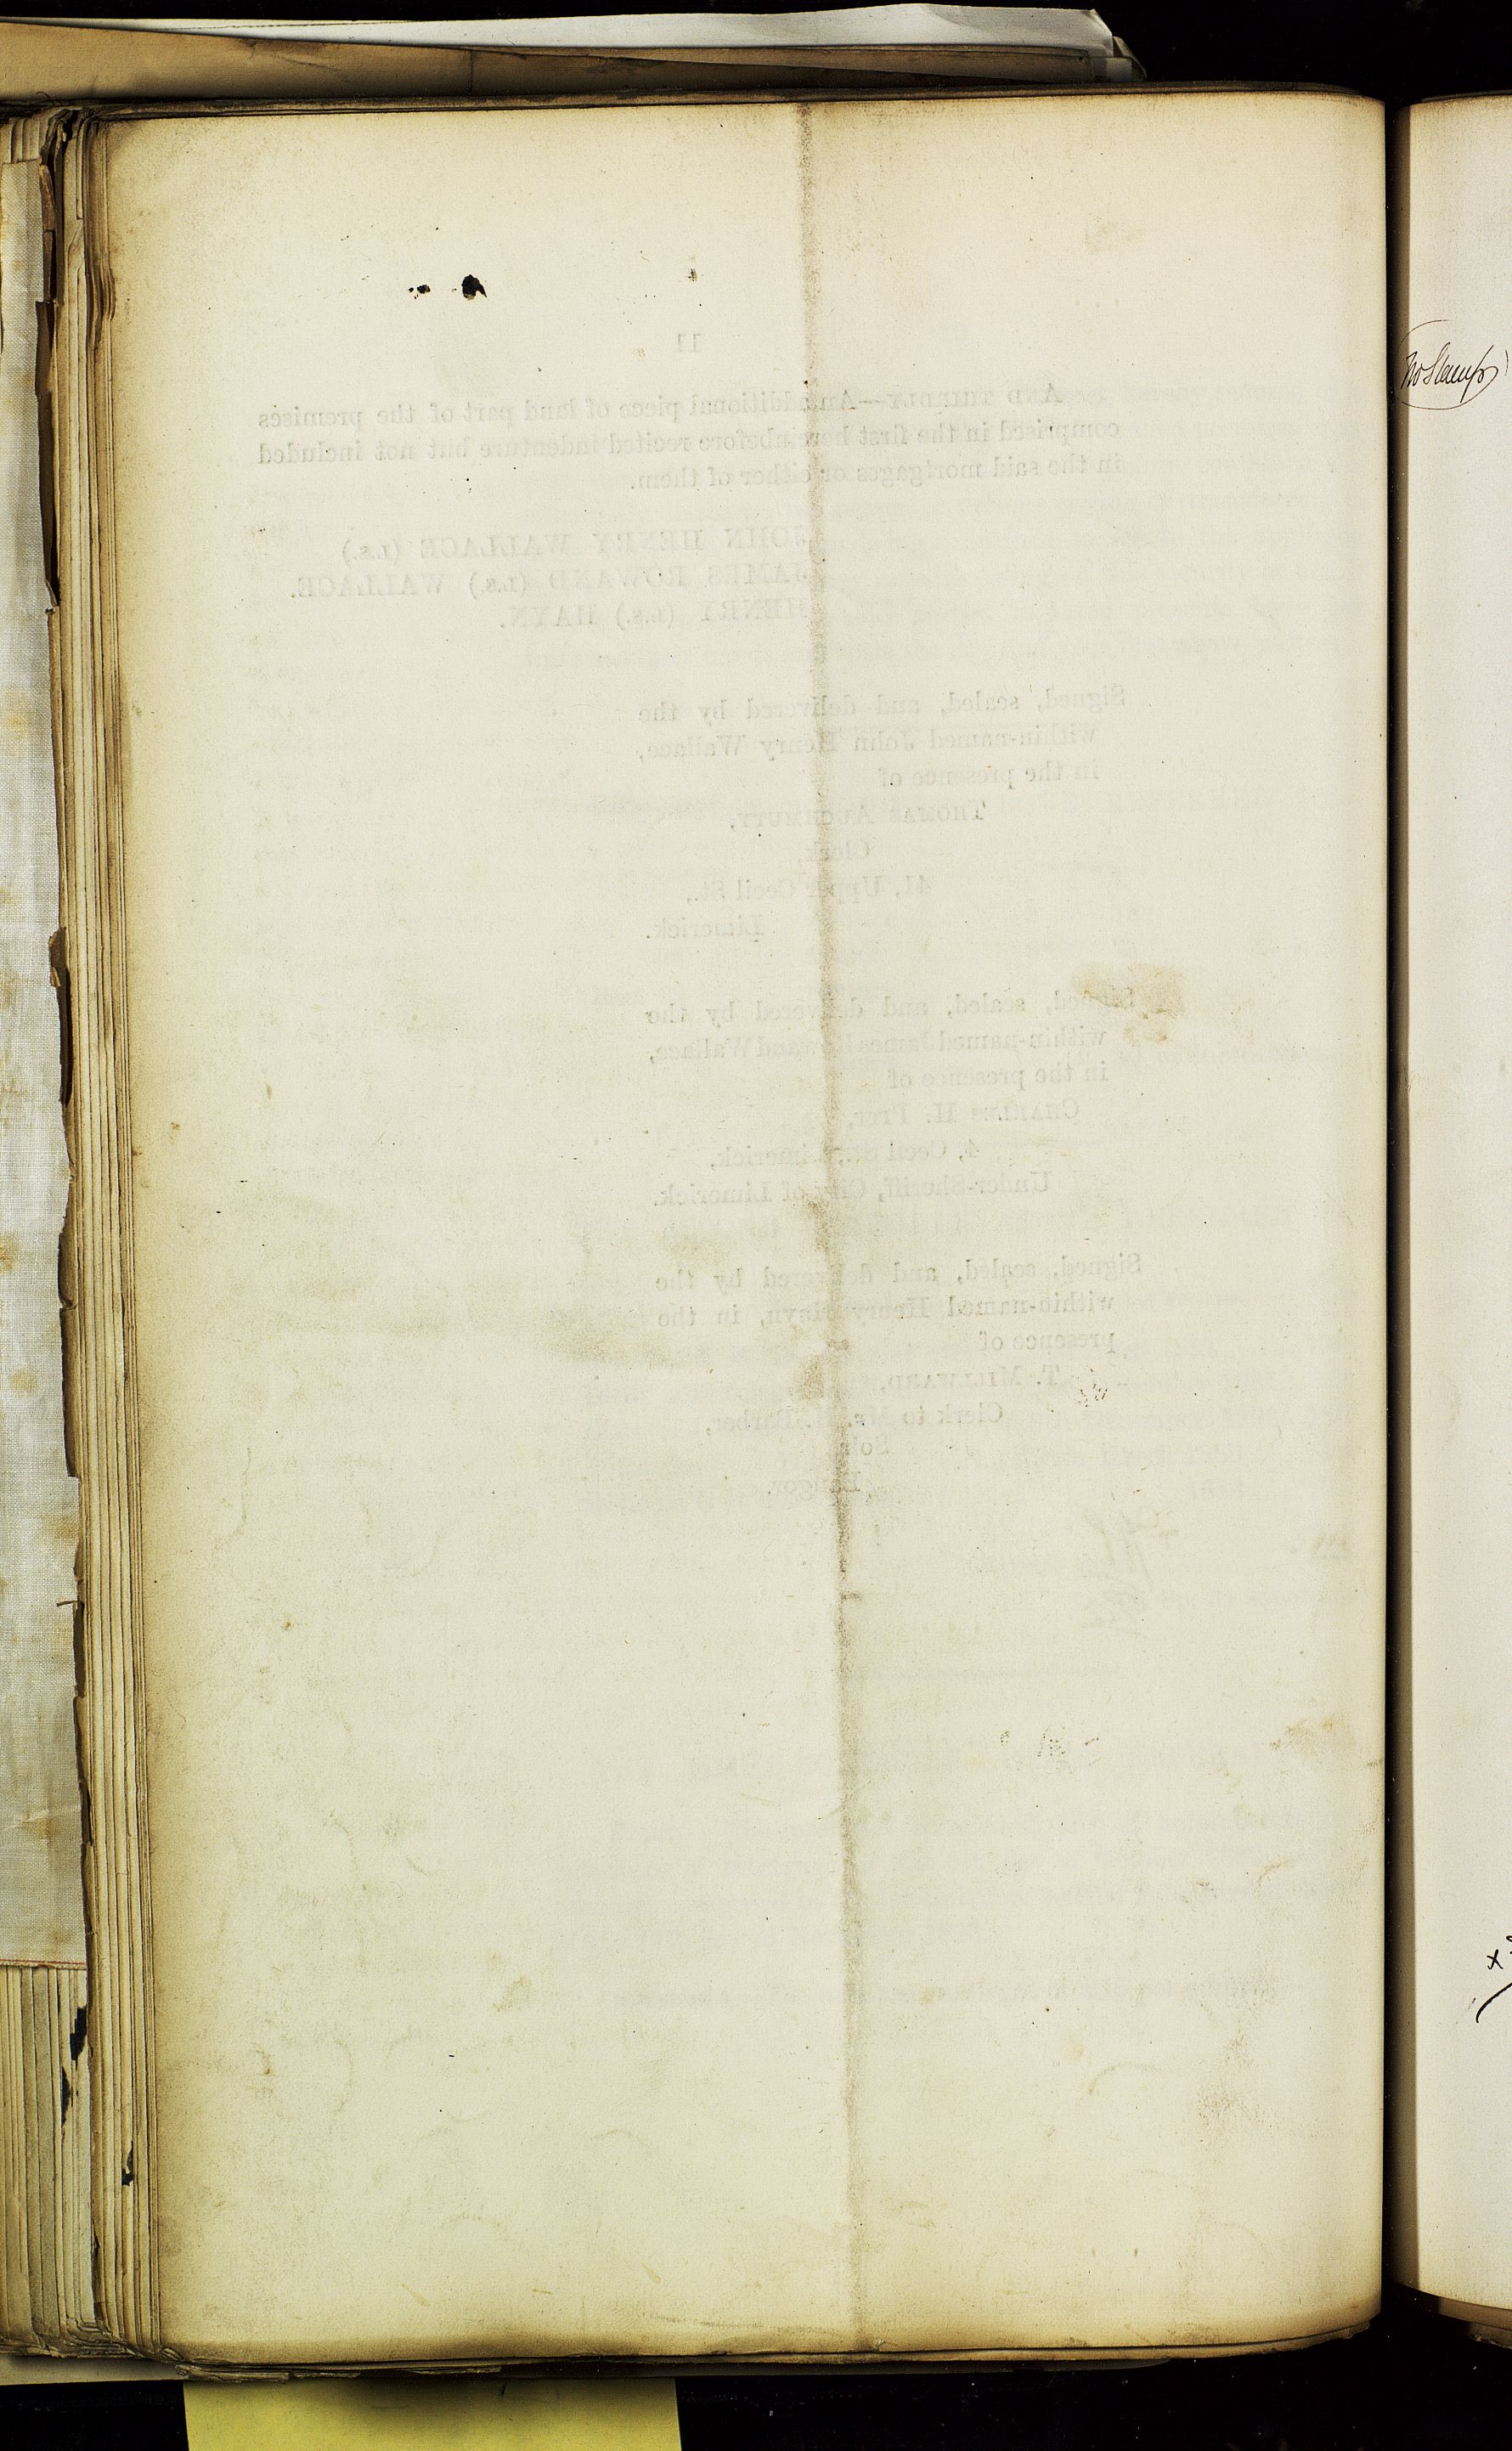 11
AND THIRDLY—An additional piece of land part of the premises
comprised in the first hereinbefore recited indenture but not included
in the said mortgages or either of them.
JOHN HENRY WALLACE (L.S.)
JAMES ROWAND (L.S.) WALLACE.
HENRY (L.S.) HAYN.
Signed, sealed, and delivered by the
within-named John Henry Wallace,
in the presence of
THOMAS AUCHMUTY,
Clerk,
41, Upper Cecil St.,
Limerick.
Signed, sealed, and delivered by the
within-named James Rowand Wallace,
in the presence of
CHARLES H. FITT,
4, Cecil St., Limerick,
Under-Sheriff, City of Limerick.
Signed, sealed, and delivered by the
within-named Henry Hayn, in the
presence of
T. MILLWARD,
Clerk to Mr. Barber,
Solr.
Bangor.
No Stamp
x